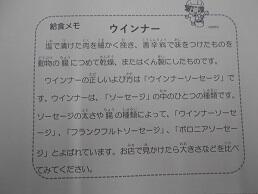 給食メモ
ウインナー
塩で漬けた肉を細かく挽き、香辛料で味をつけたものを
動物の腸につめて乾燥、またはくん製にしたものです。
ウインナーの正しいよび方は「ウインナーソーセージ」で
す。ウインナーは、「ソーセージ」の中のひとつの種類です。
ソーセージの太さや腸の種類によって、「ウインナーソーセ
ージ」、「フランクフルトソーセージ」、「ボロニアソーセー
ジ」とよばれています。お店で見かけたら大きさなどを比べ
てみてください。